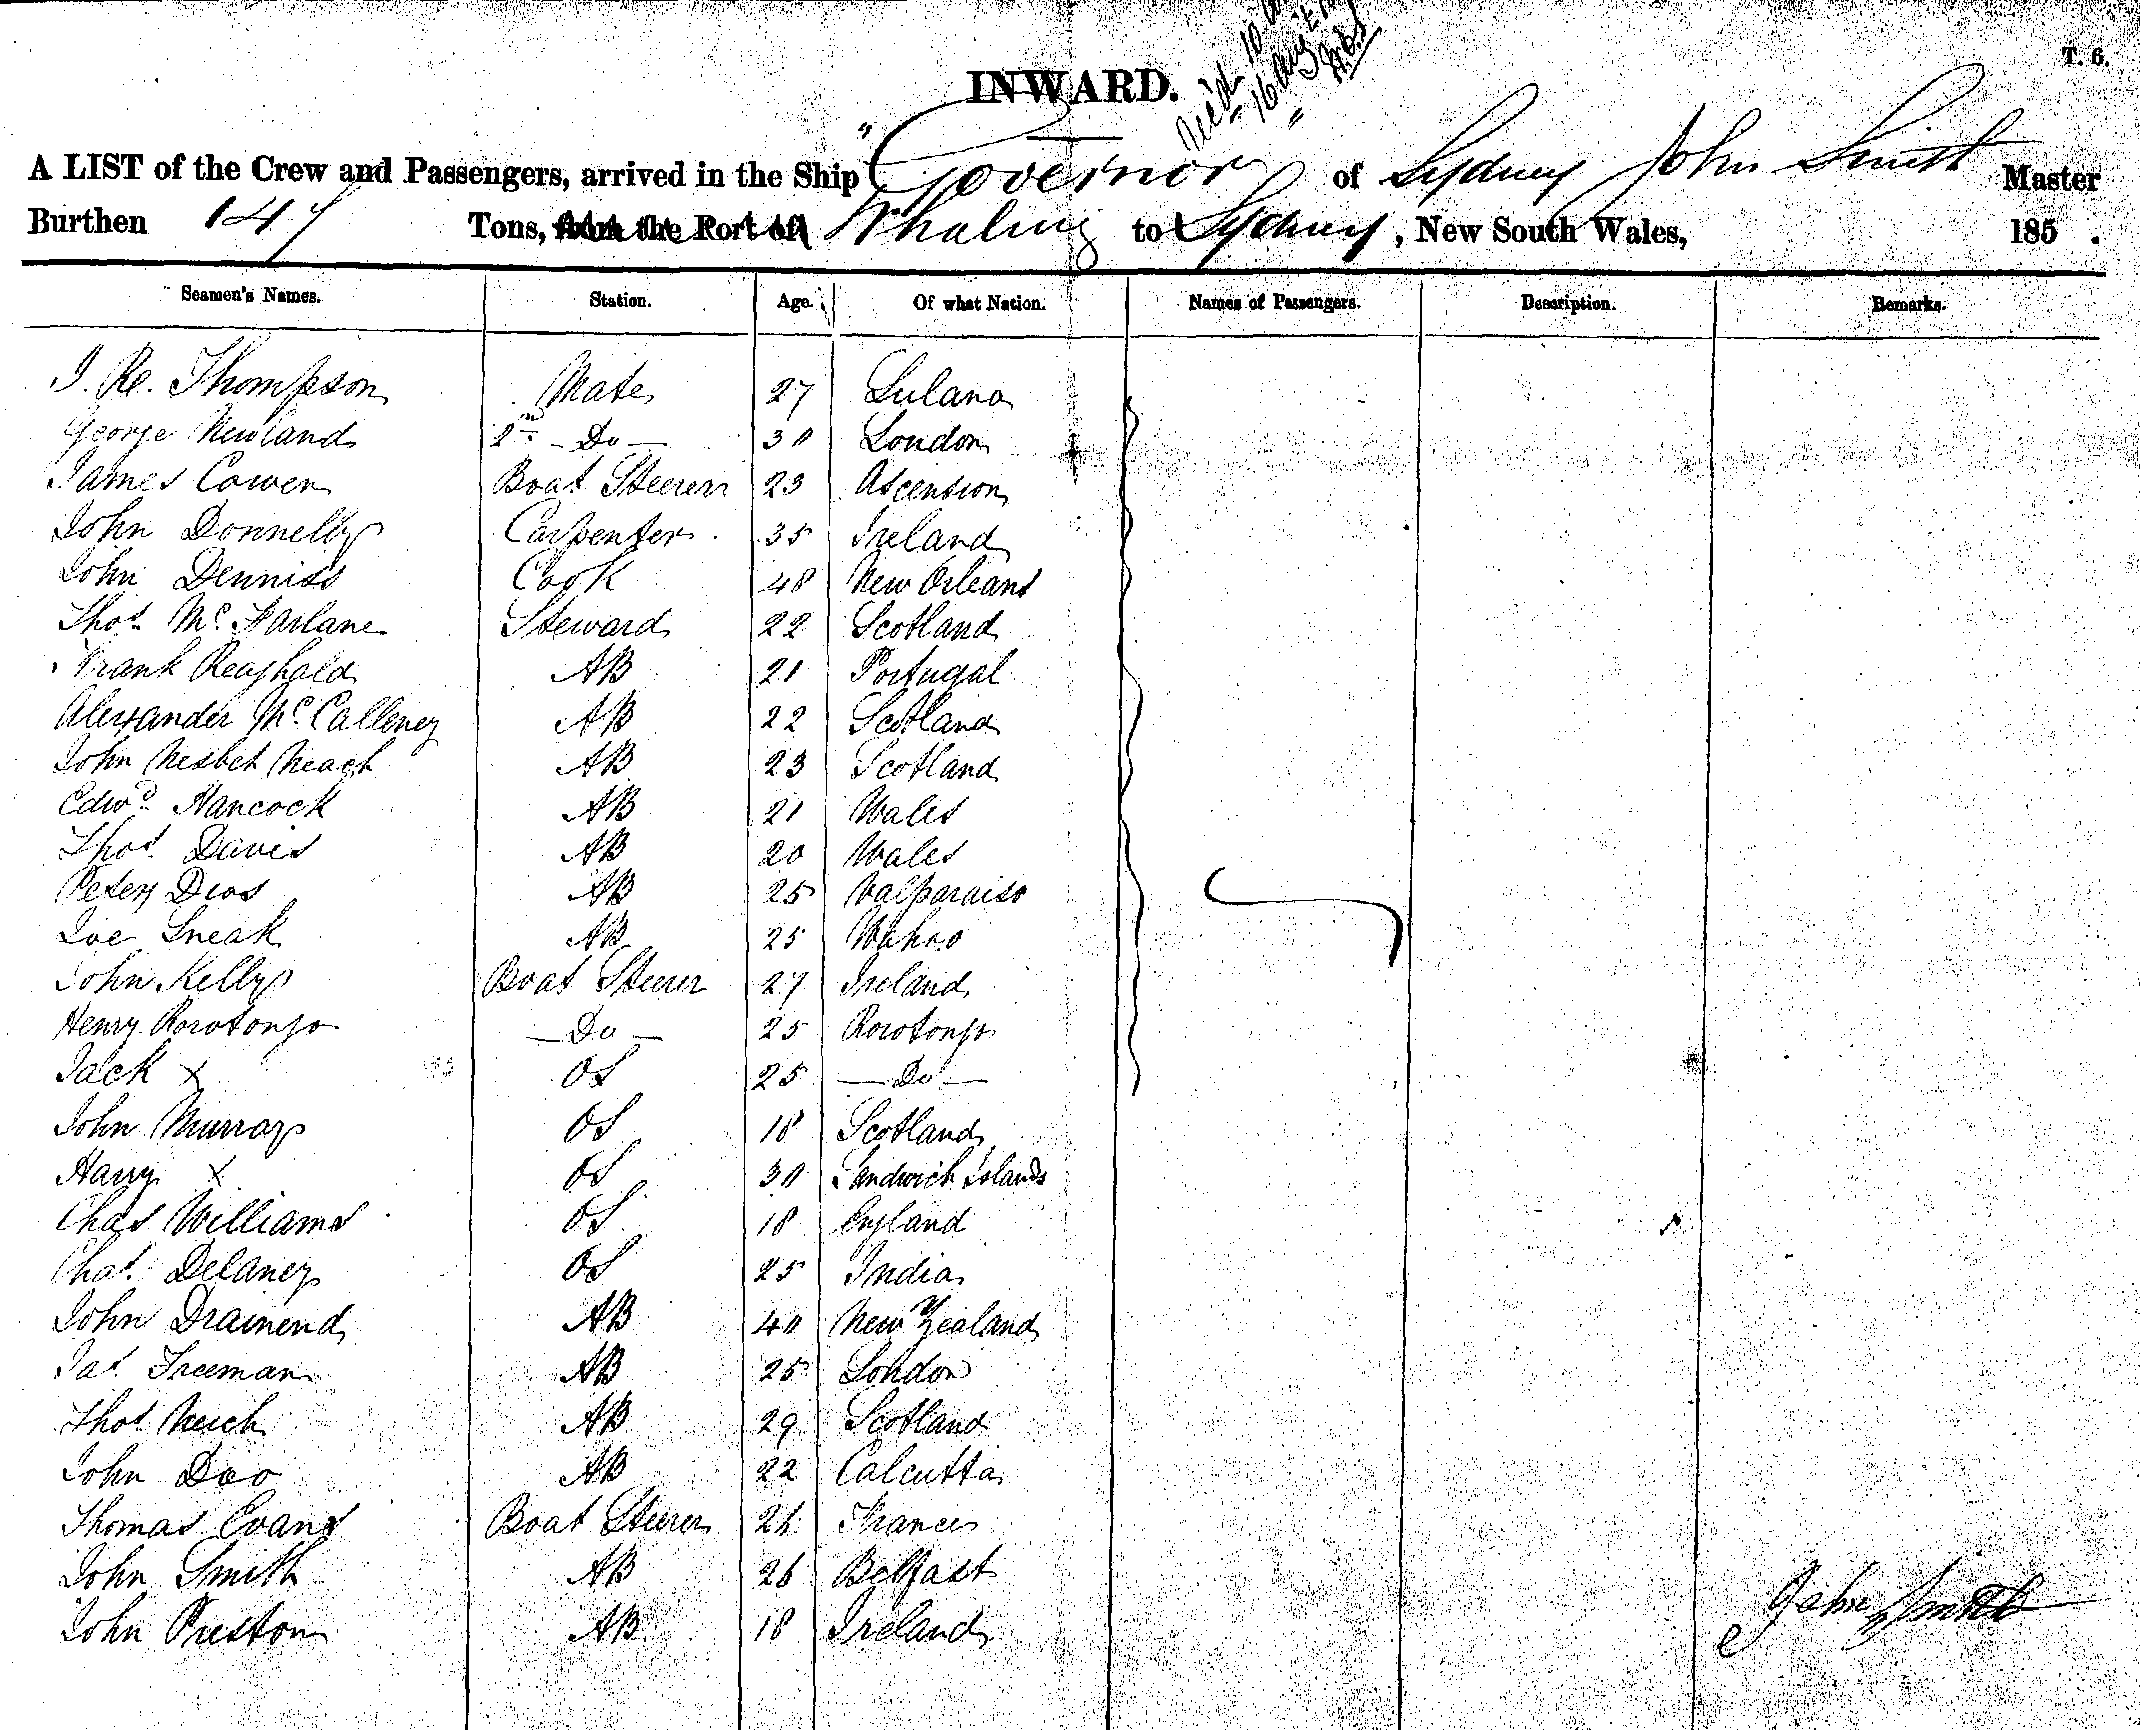 T. 6.
INWARD.
A LIST of the Crew and Passengers, arrived in the Ship "Governor of Sydney John Smith Master
Burthen 147 Tons, from the Port of Whaling to Sydney, New South Wales, 185 .
Seamen's Names. Station. Age. Of what Nation. Names of Passengers. Description. Remarks.
Thompson Mate 27
George Newland 2nd - Do - 30 London
James Cowen Boat Steerer 23 Ascension
John Donnelly Carpenter 35 Ireland
John Denniss Cook 48 New Orleans
Thos. Mc.Farlane Steward 22 Scotland
Frank AB 21 Portugal
Alexander Mc.Calleney AB 22 Scotland
John Nesbet AB 23 Scotland
Edwd. Hancock AB 21 Wales
Thos. Davis AB 20 Wales
Peter Dios AB 25 Valparaiso
Joe Sneak AB 25 Wahoo
John Kelly Boat Steerer 27 Ireland
Henry Rorotonga - Do - 25 Rorotonga
Jack X OS 25 - Do -
John Murray OS 18 Scotland
Harry X OS 30 Sandwich Islands
Chas Williams OS 18 England
Chas. Delaney OS 25 India
John AB 40 New Zealand
Jas. Freeman AB 25 London
Thos. AB 29 Scotland
John Doo AB 22 Calcutta
Thomas Evans Boat Steerer 26 France
John Smith AB 26 Belfast
John Preston AB 18 Ireland
John Smith